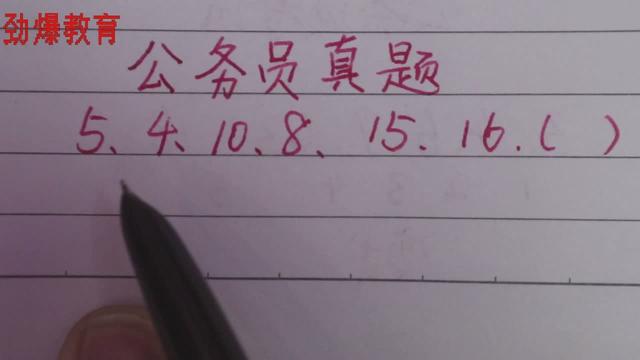 劲爆教育
公务员真题
5、4、10、8、15.16.( )